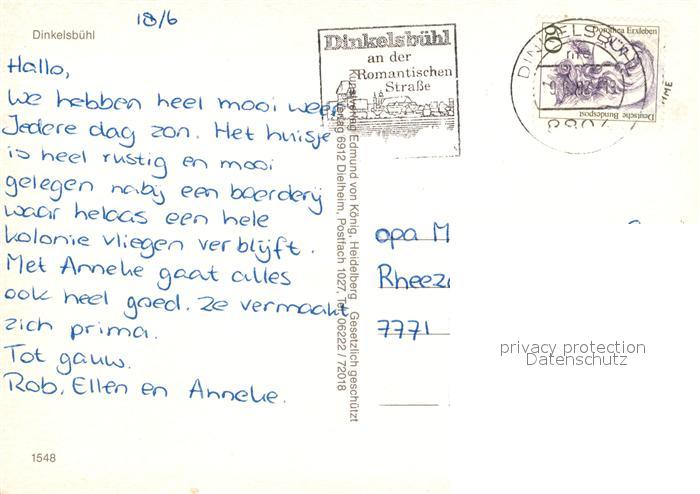 18/6
Dinkelsbühl
Hallo,
We hebben heel mooi weer
Jedere dag zon. Het huisje
is heel rustig en mooi
gelegen nabij een boerderij
waar helaas een hele
kolonie vliegen verblijft.
Met Anneke gaat alles
ook heel goed. Ze vermaakt
zich prima.
Tot gauw.
Rob, Ellen en Anneke.
1548
Dinkelsbühl
an der
Romantischen
Straße
Kunstverlag Edmund von König, Heidelberg Gesetzlich geschützt
Verlag 6912 Dielheim, Postfach 1027, Tel. 06222 / 72018
Dorothea Erxleben
60
Deutsche Bundespost
DINKELSBÜHL
opa M
Rheeze
7771
privacy protection
Datenschutz